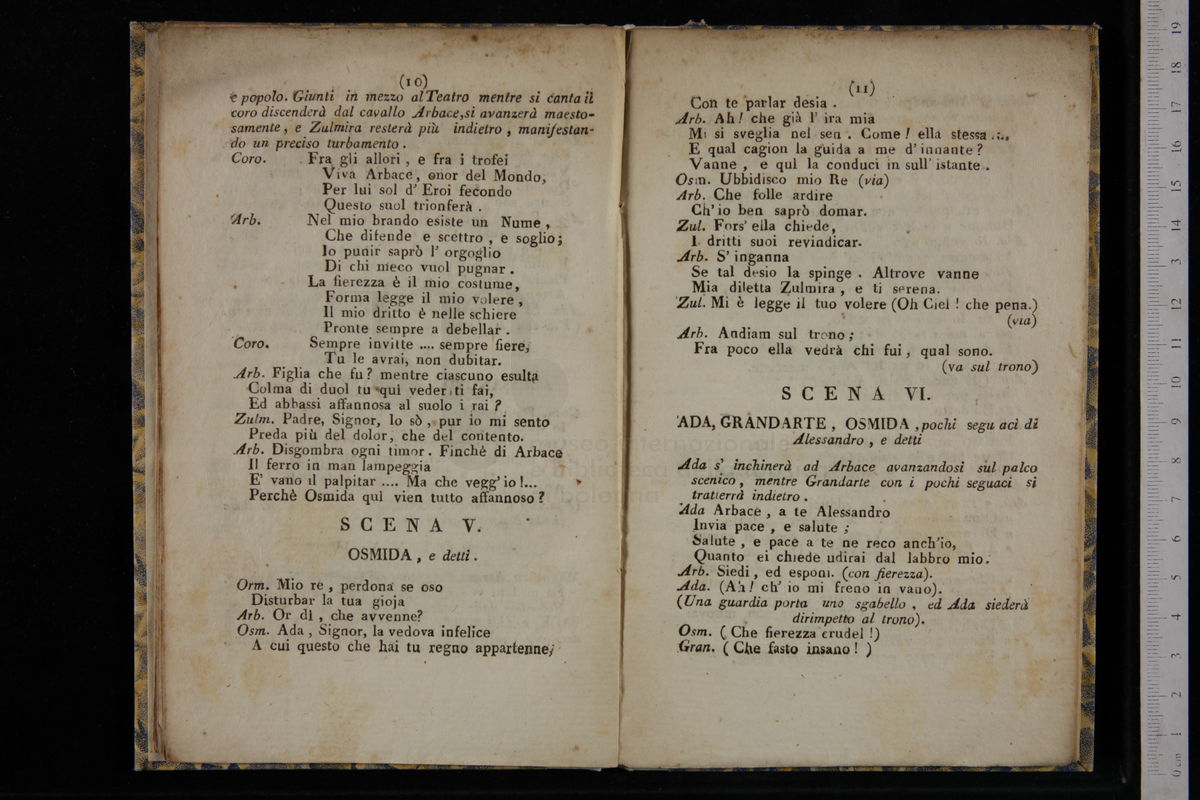 (10)
e popolo. Giunti in mezzo al Teatro mentre si canta il
coro discenderà dal cavallo Arbace, si avanzerà maesto-
samente, e Zulmira resterà più indietro, manifestan-
do un preciso turbamento.
Coro. Fra gli allori, e fra i trofei
Viva Arbace, onor del Mondo,
Per lui sol d' Eroi fecondo
Questo suol trionferà.
Arb. Nel mio brando esiste un Nume,
Che difende e scettro, e soglio;
Io punir saprò l' orgoglio
Di chi meco vuol pugnar.
La fierezza è il mio costume,
Forma legge il mio volere,
Il mio dritto è nelle schiere
Pronte sempre a debellar.
Coro. Sempre invitte .... sempre fiere,
Tu le avrai, non dubitar.
Arb. Figlia che fu? mentre ciascuno esulta
Colma di duol tu qui veder ti fai,
Ed abbassi affannosa al suolo i rai?
Zulm. Padre, Signor, lo sò, pur io mi sento
Preda più del dolor, che del contento.
Arb. Disgombra ogni timor. Finchè di Arbace
Il ferro in man lampeggia
E' vano il palpitar .... Ma che vegg' io!...
Perchè Osmida qui vien tutto affannoso?
SCENA V.
OSMIDA, e detti.
Orm. Mio re, perdona se oso
Disturbar la tua gioja
Arb. Or dì, che avvenne?
Osm. Ada, Signor, la vedova infelice
A cui questo che hai tu regno appartenne,
(11)
Con te parlar desia.
Arb. Ah! che già l' ira mia
Mi si sveglia nel sen. Come! ella stessa ....
E qual cagion la guida a me d' innante?
Vanne, e qui la conduci in sull' istante.
Osm. Ubbidisco mio Re (via)
Arb. Che folle ardire
Ch' io ben saprò domar.
Zul. Fors' ella chiede,
I dritti suoi revindicar.
Arb. S' inganna
Se tal desio la spinge. Altrove vanne
Mia diletta Zulmira, e ti serena.
Zul. Mi è legge il tuo volere (Oh Ciel! che pena.)
(via)
Arb. Andiam sul trono;
Fra poco ella vedrà chi fui, qual sono.
(va sul trono)
SCENA VI.
ADA, GRANDARTE, OSMIDA, pochi segu aci di
Alessandro, e detti
Ada s' inchinerà ad Arbace avanzandosi sul palco
scenico, mentre Grandarte con i pochi seguaci si
tratterrà indietro.
Ada Arbace, a te Alessandro
Invia pace, e salute;
Salute, e pace a te ne reco anch'io,
Quanto ei chiede udirai dal labbro mio.
Arb. Siedi, ed esponi. (con fierezza).
Ada. (Ah! ch' io mi freno in vano).
(Una guardia porta uno sgabello, ed Ada siederà
dirimpetto al trono).
Osm. (Che fierezza crudel!)
Gran. (Che fasto insano!)